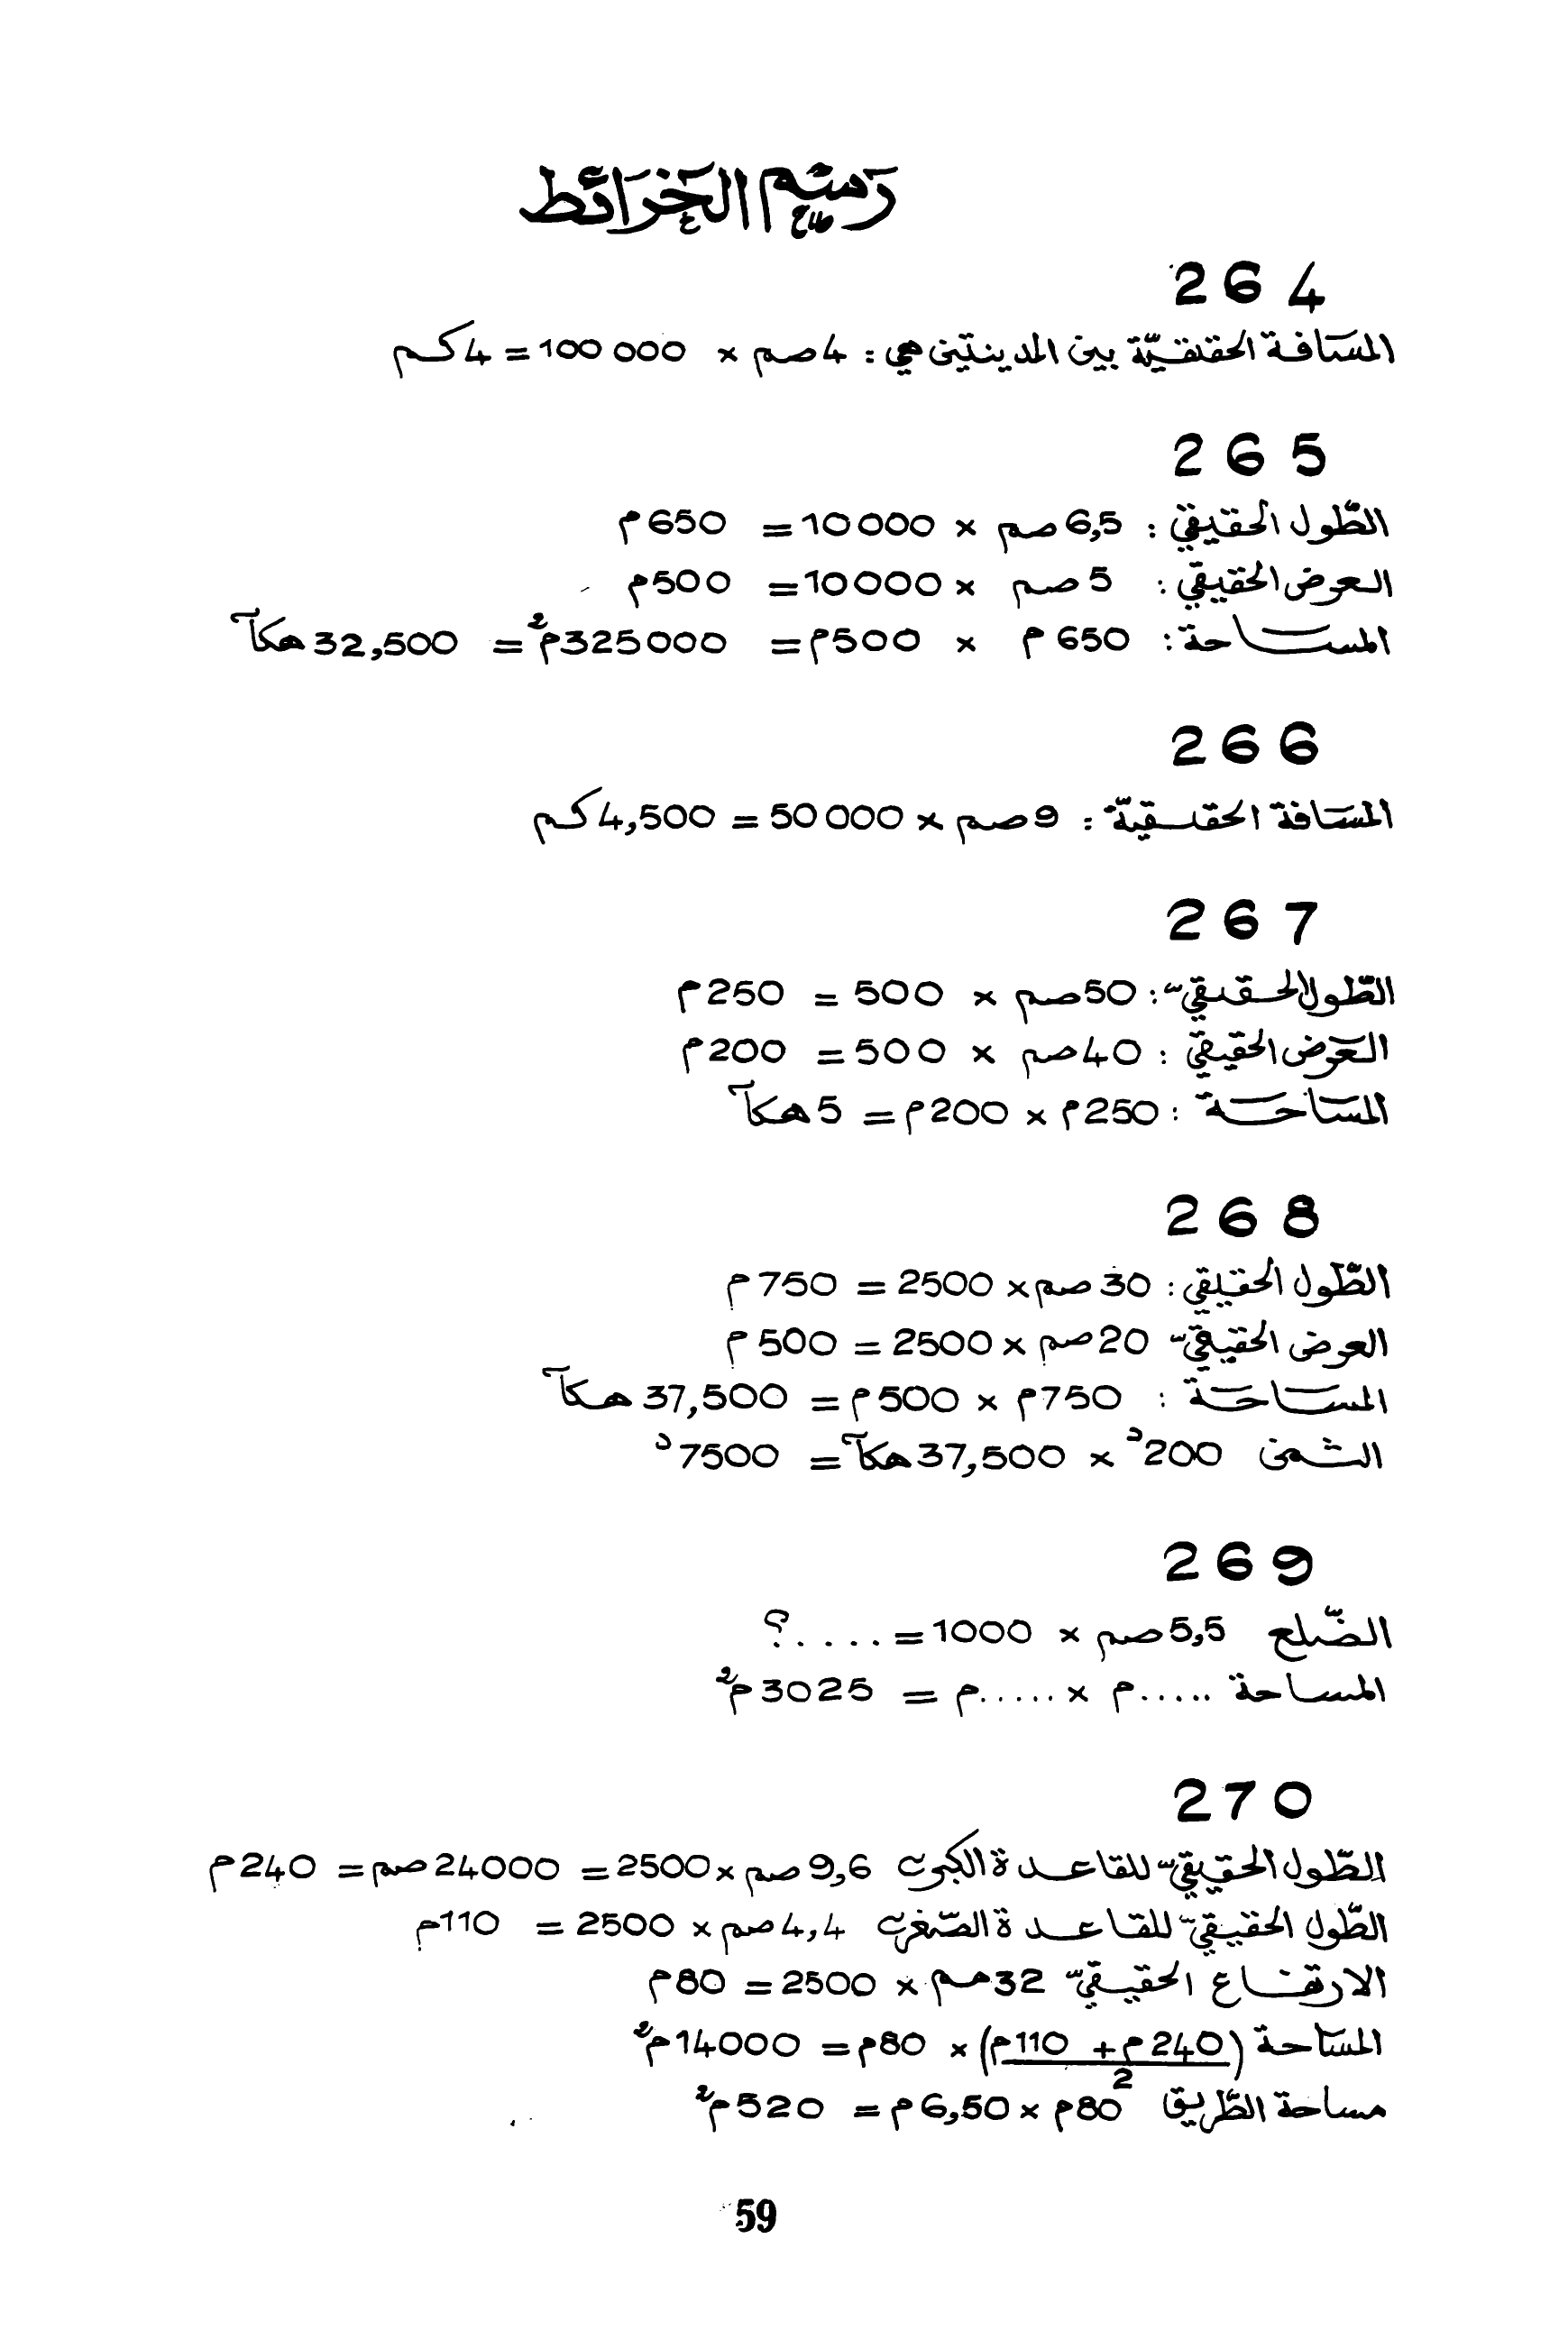 رسم الخرائط
264
المسَافة الحقيقيّة بين المدينتين هي : 4صم × 100 000 = 4كم
265
الطّول الحقيقيّ : 6,5صم × 10000 = 650م
العرض الحقيقيّ : 5 صم × 10000 = 500م
المساحة : 650م × 500م = 325000م² = 32,500 هكآ
266
المسَافة الحقيقيّة : 9صم × 50 000 = 4,500كم
267
الطّول الحقيقيّ : 50صم × 500 = 250م
العَرض الحقيقيّ : 40صم × 500 = 200م
المسَاحَة : 250م × 200م = 5هكآ
268
الطّول الحقيقي : 30صم × 2500 = 750م
العرض الحقيقيّ 20صم × 2500 = 500م
المسَاحَة : 750م × 500م = 37,500 هكآ
الثمن 200د × 37,500هكآ = 7500د
269
الضّلع 5,5صم × 1000 = ....؟
المساحة .....م × .....م = 3025م²
270
الطّول الحقيقيّ للقاعدة الكبرى 9,6صم × 2500 = 24000صم = 240م
الطّول الحقيقيّ للقاعدة الصّغرى 4,4صم × 2500 = 110م
الارتفاع الحقيقيّ 32مم × 2500 = 80م
المسَاحة (240م + 110م) × 80م = 14000م²
2
مساحة الطّريق 80م × 6,50م = 520م²
59